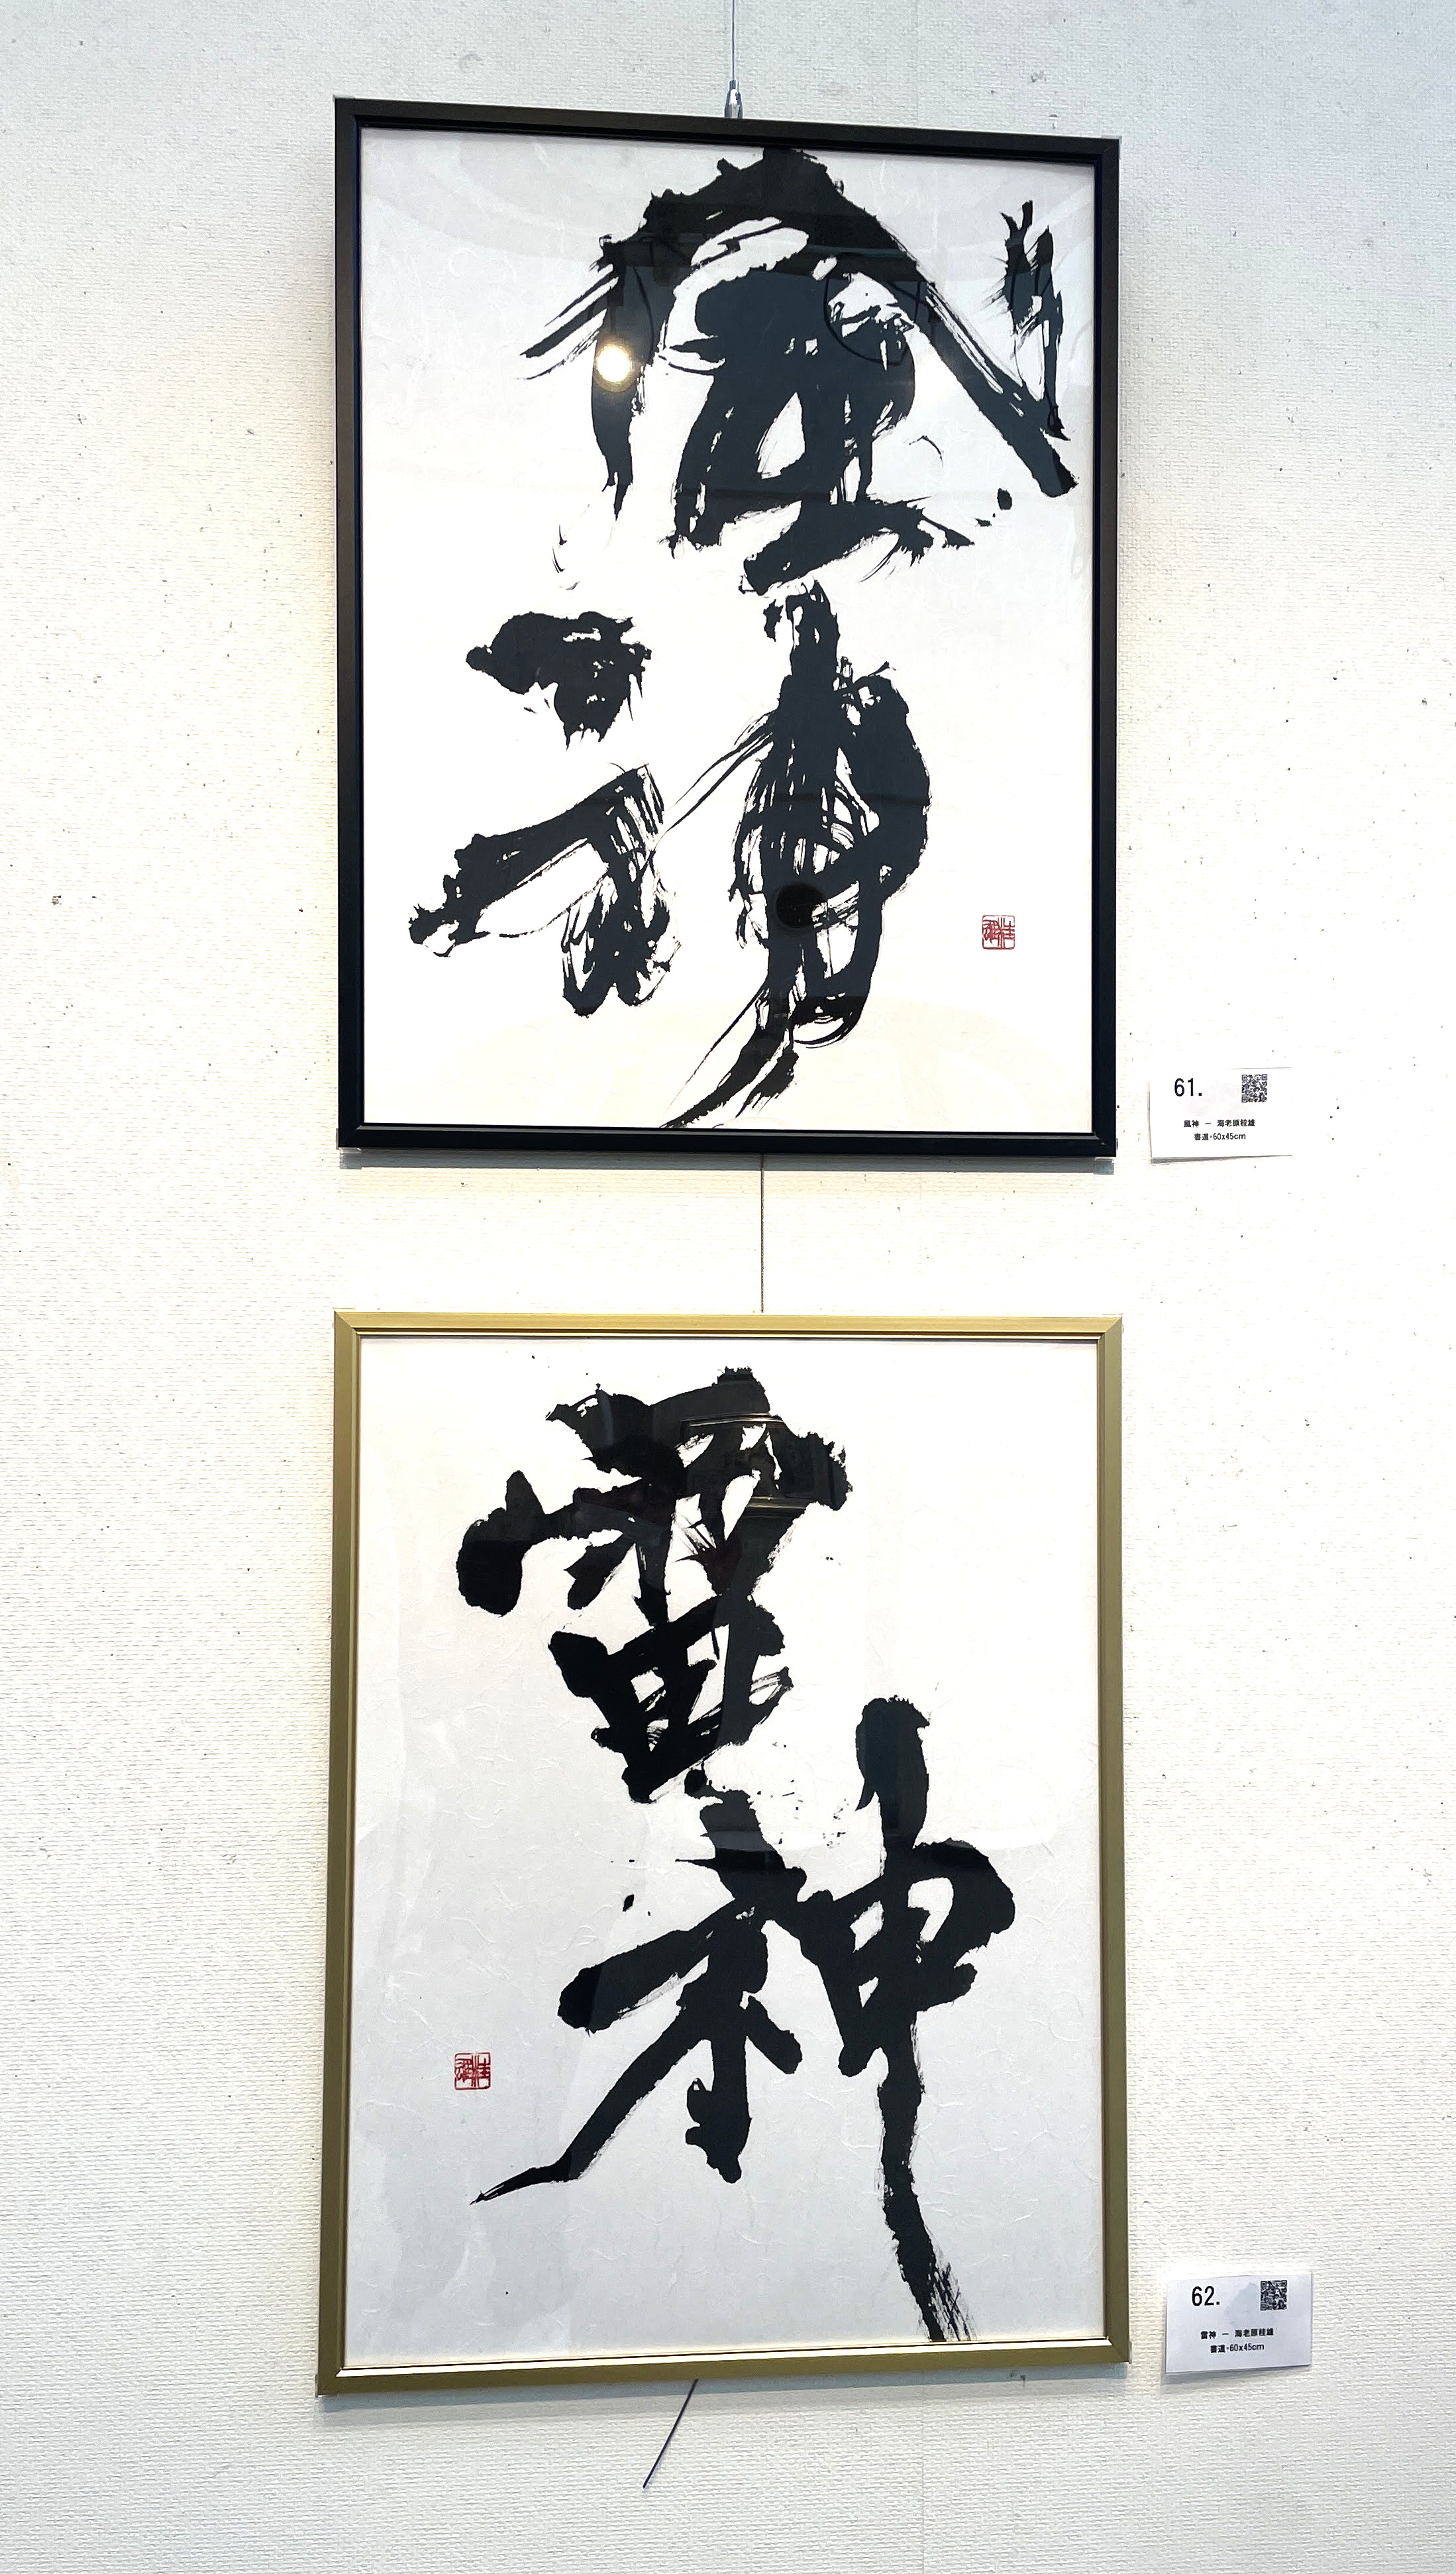 風神
61.
風神 － 海老原桂雄
書道・60x45cm
雷神
62.
雷神 － 海老原桂雄
書道・60x45cm